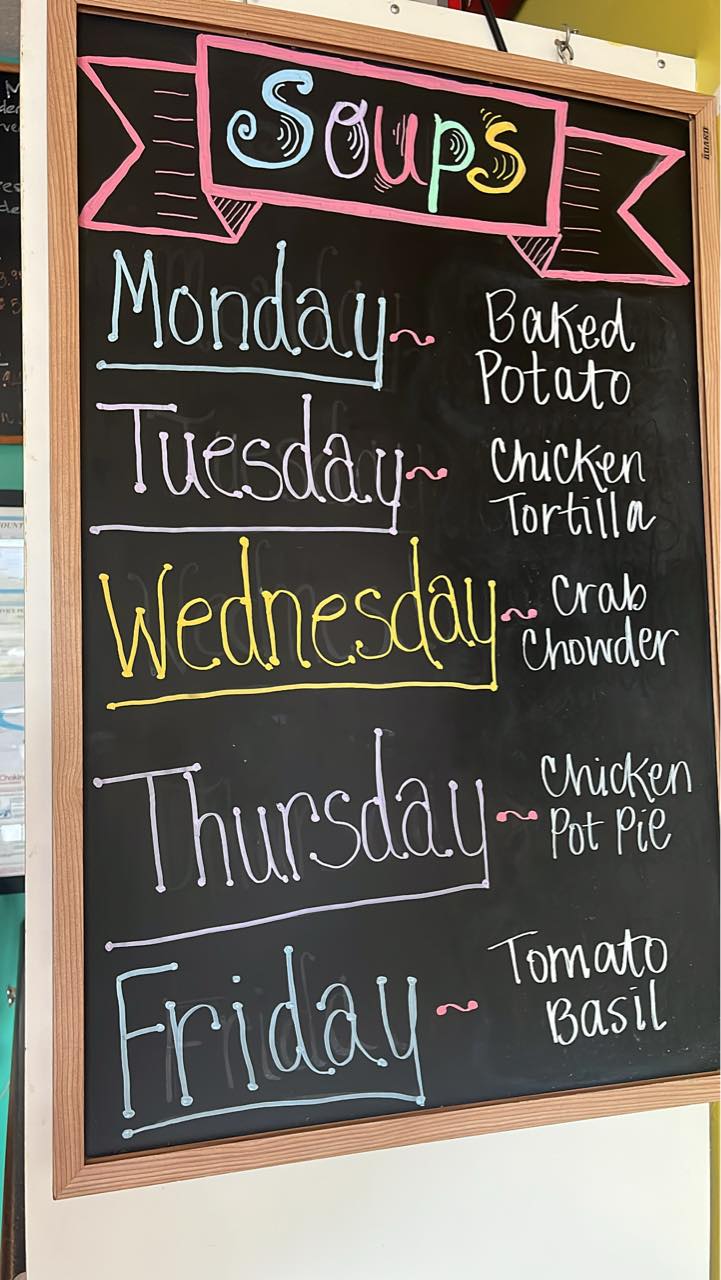 Soups
Monday ~ Baked
Potato
Tuesday ~ Chicken
Tortilla
Wednesday ~ Crab
Chowder
Thursday ~ Chicken
Pot Pie
Friday ~ Tomato
Basil
BOARD